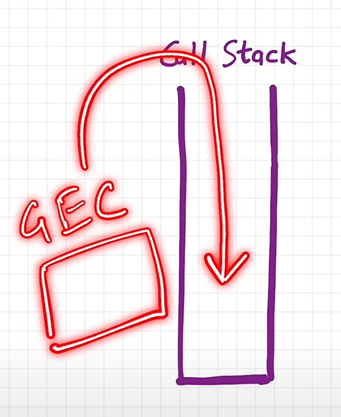 Call Stack
GEC